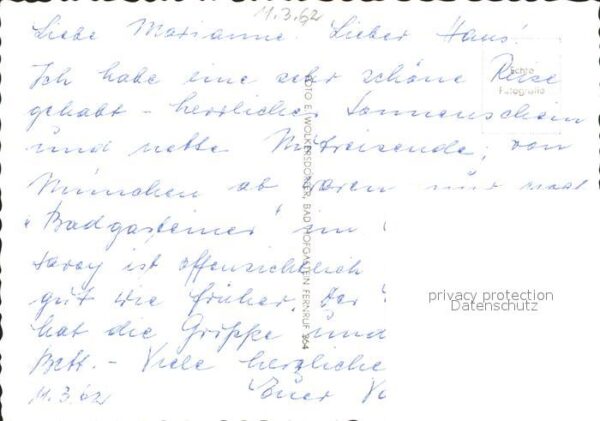 11.3.62
Liebe Marianne! Lieber Hans!
Ich habe eine sehr schöne Reise
gehabt - herrlichen Sonnenschein
und nette Mitreisende, von
München ab waren nur noch
"Badgasteiner" im
ist offensichtlich
gut wie früher. Der
hat die Grippe und
Bett. - Viele herzliche
11.3.62 Euer
Echte
Fotografie
FOTO E. WOLKERSDORFER, BAD HOFGASTEIN FERNRUF 364
privacy protection
Datenschutz